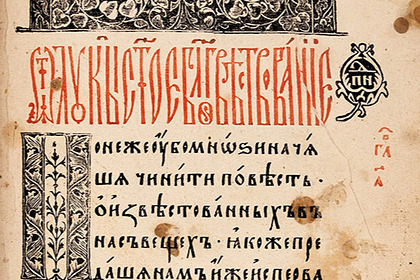 ѿ лꙋки ст҃ое бл҃говѣствованїе
Понеже оубо мнѡѕи начѧ
шѧ чинити повѣсть ·
о извѣстованныхъ въ
насъ вещехъ · ꙗкоже пре
дашѧ намъ иже исперва